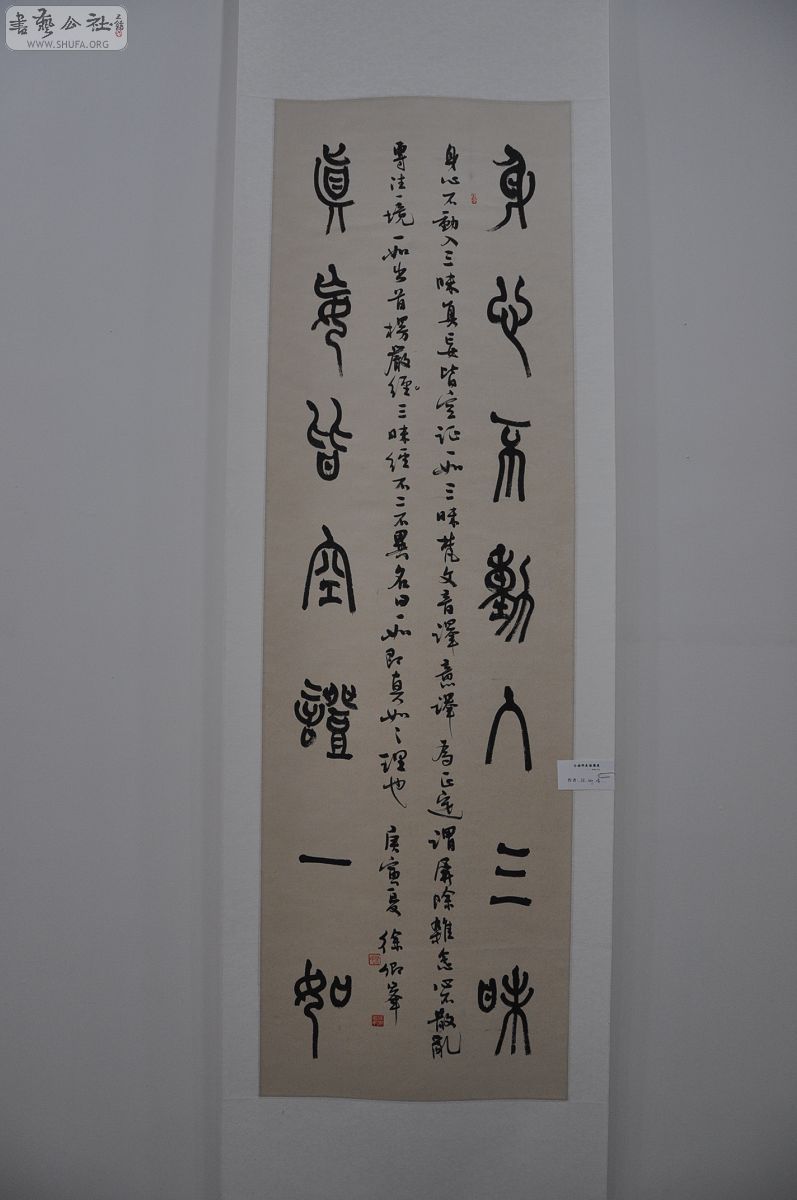 書藝公社
WWW.SHUFA.ORG
身心不動入三昧
身心不動入三昧真妄皆空证一如三昧梵文音譯意譯為正定謂屏除雜念心不散亂
專注一境一如出首楞嚴經三昧經不二不異名曰一如即真如之理也 庚寅夏 徐仰峯
眞妄皆空證一如